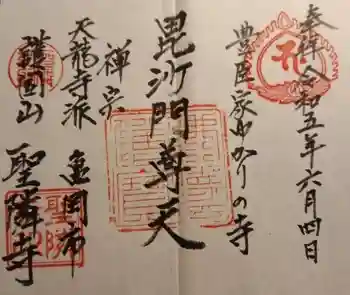 奉拝 令和五年六月四日
豊臣家ゆかりの寺
毘沙門尊天
禅宗
天龍寺派 亀岡市
護国山 聖隣寺
聖隣